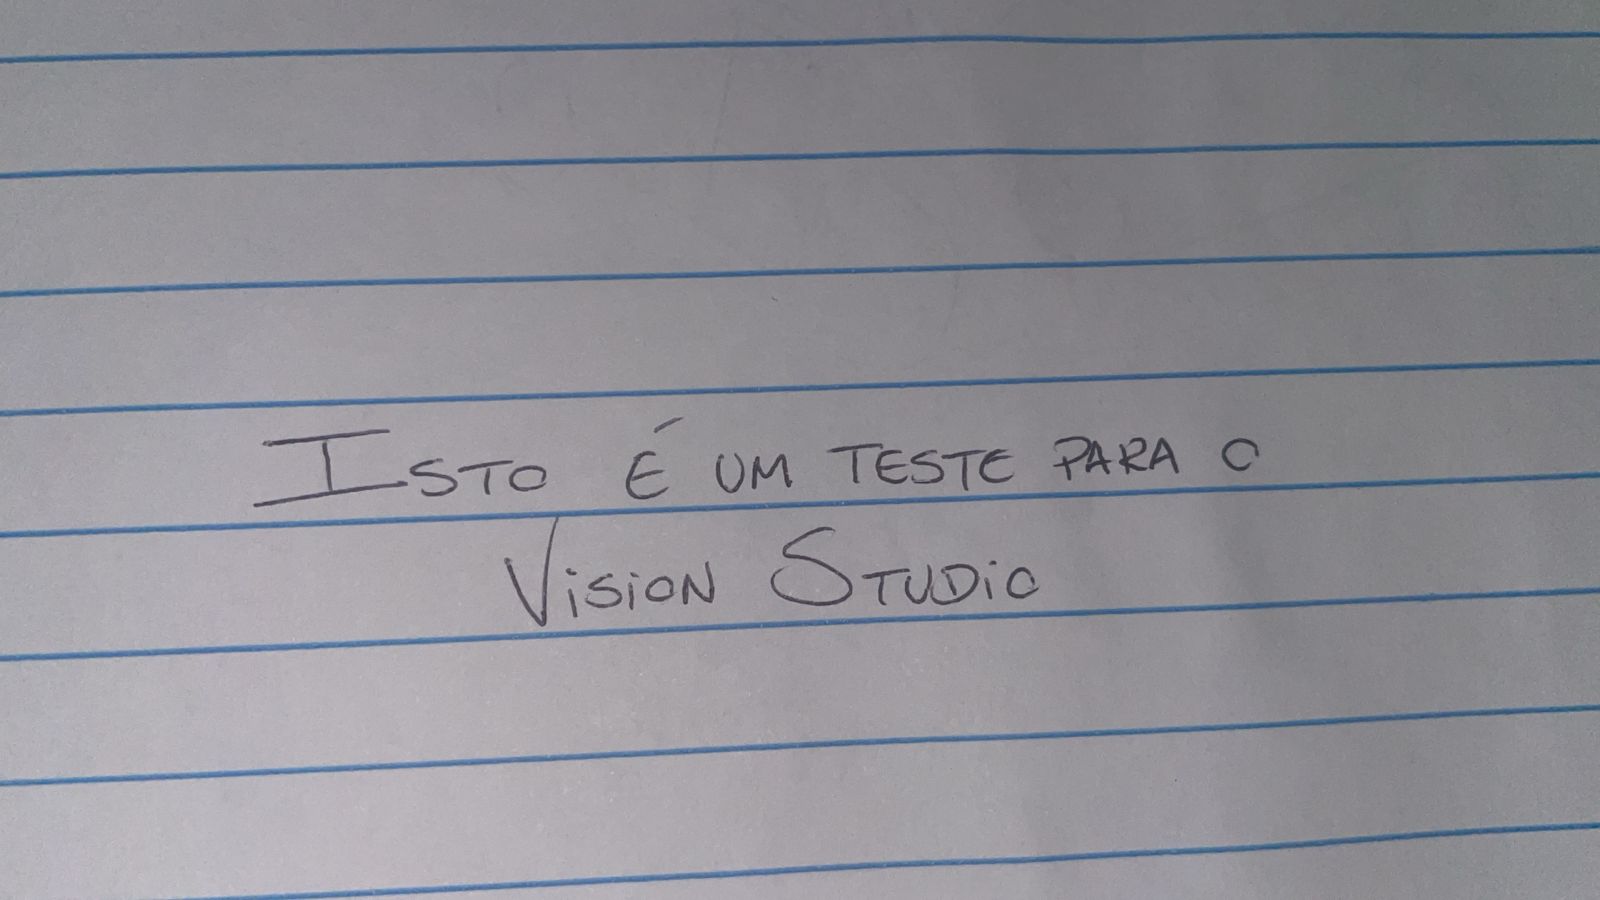 Isto é um teste para o
Vision Studio